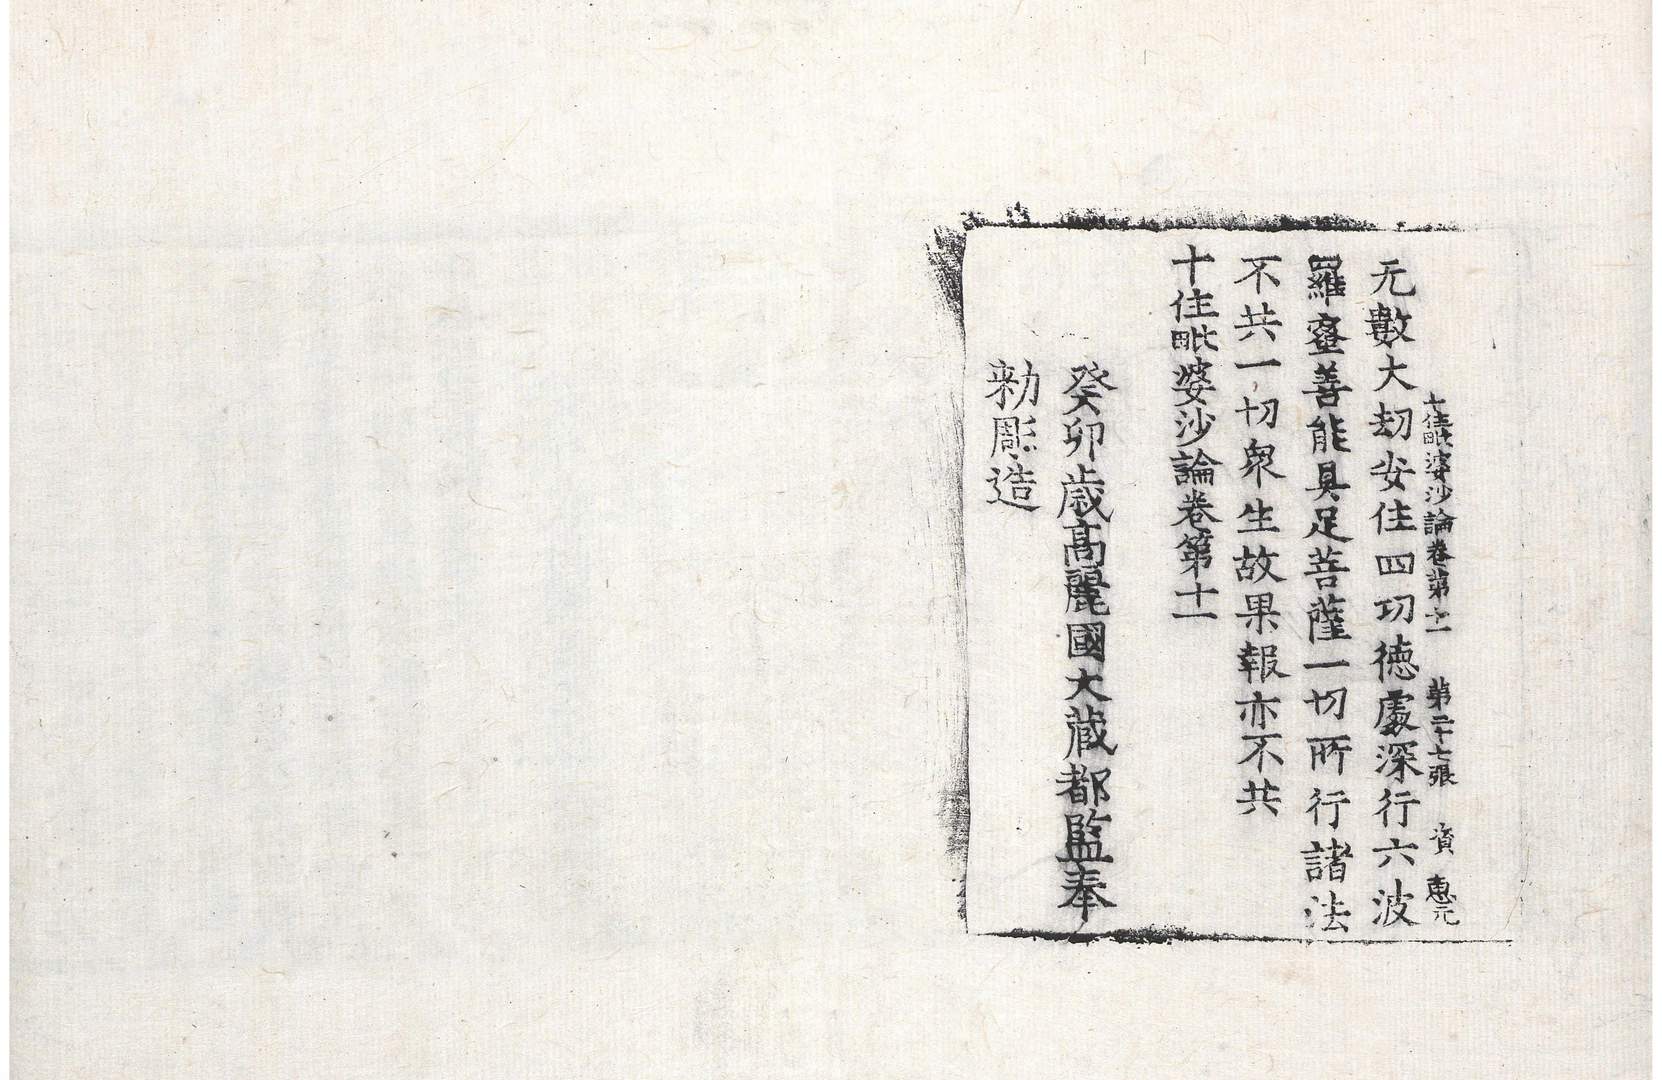 十住毗婆沙論卷第十一 苐二十七張 資 惠元
无數大劫安住四功德處深行六波
羅蜜善能具足菩薩一切所行諸法
不共一切衆生故果報亦不共
十住毗婆沙論卷第十一
癸卯歳高麗國大藏都監奉
勑彫造